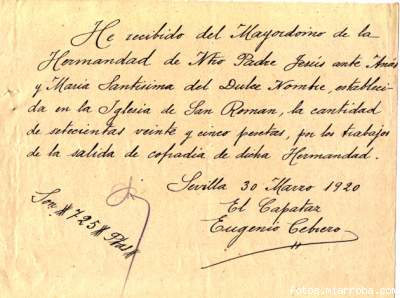 He recibido del Mayordomo de la
Hermandad de Ntro Padre Jesús ante Anás
y María Santísima del Dulce Nombre, estableci-
da en la Iglesia de San Roman, la cantidad
de setecientas veinte y cinco pesetas, por los trabajos
de la salida de cofradia de dicha Hermandad.
Sevilla 30 Marzo 1920
El Capataz
Eugenio Cebrero
Son #725# Ptas#
fotos.miarroba.com